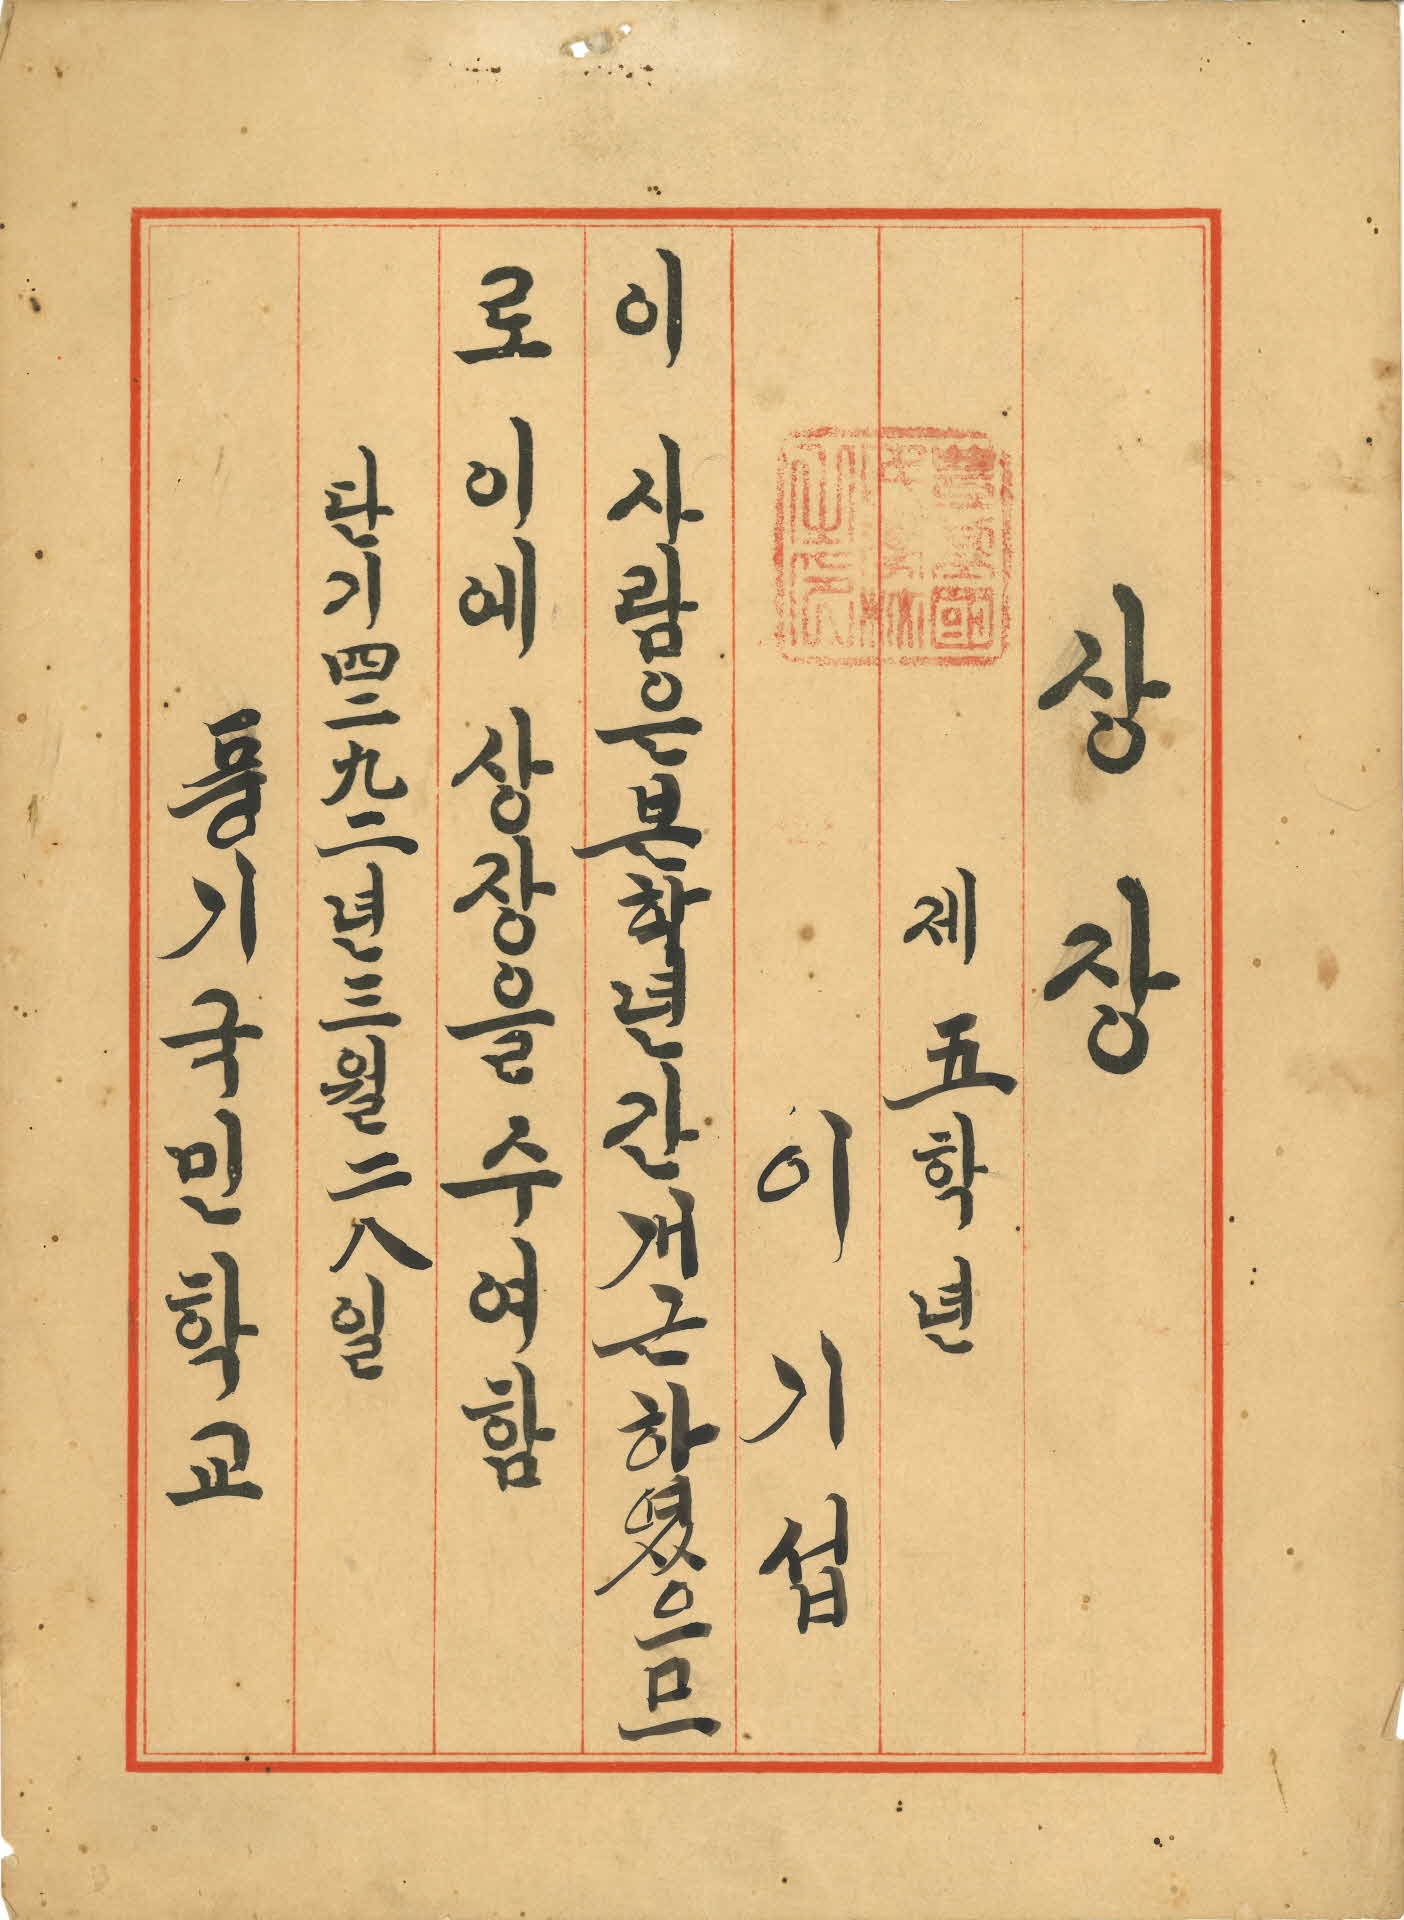 상장
제五학년
이기섭
이 사람은 본학년간 개근하였으므
로 이에 상장을 주여함
단기四二九二년三월二八일
풍기국민학교